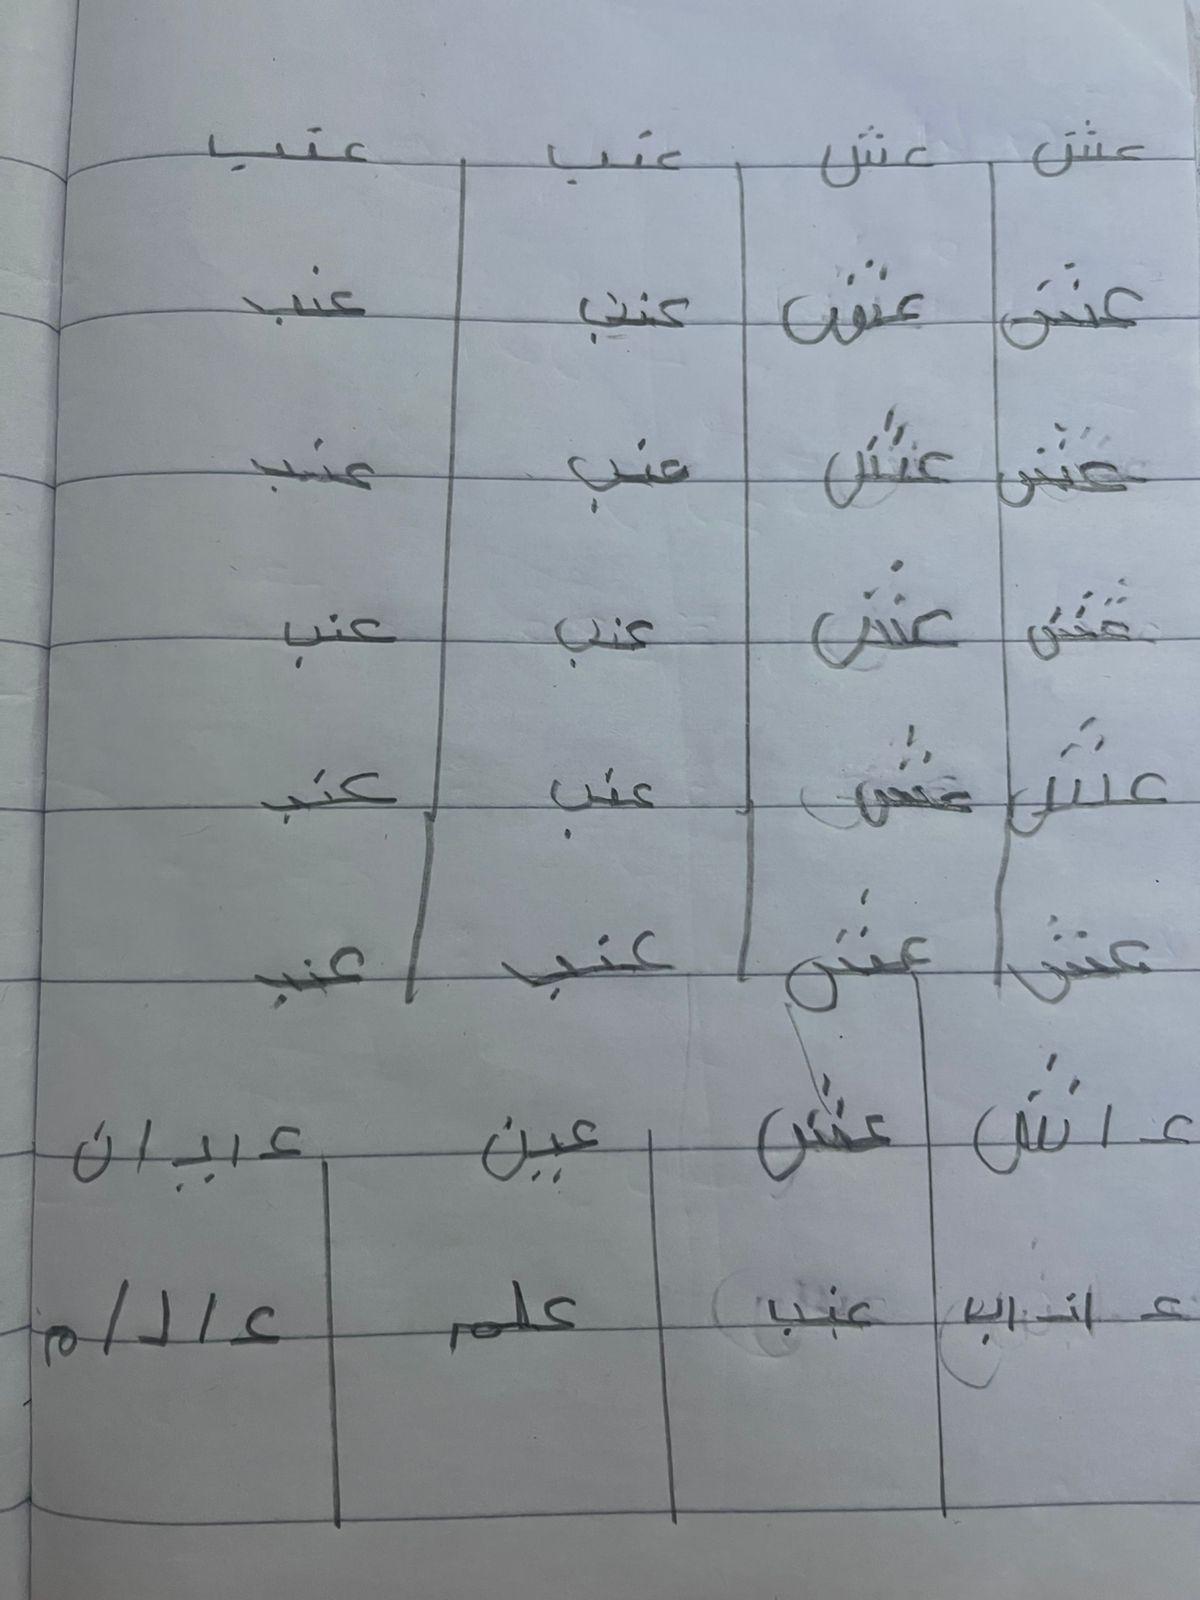 عش عش عنب عنب
عش عش عنب عنب
عش عش عنب عنب
عش عش عنب عنب
عش عش عنب عنب
عش عش عنب عنب
عـ / ش عش عين عـ / يـ / ن
عـ / نـ / ب عنب علم عـ / لـ / م